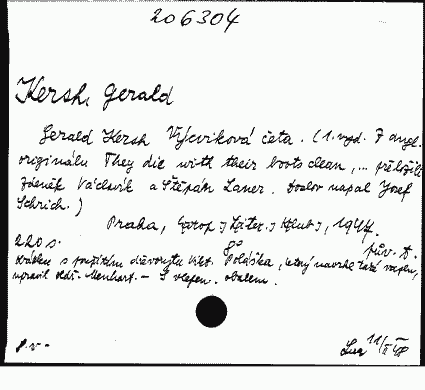 206304
Kersh, Gerald
Gerald Kersh Výcviková četa. (1. vyd. Z angl.
originálu They die with their boots clean, ... přeložili
Zdeněk Václavík a Štěpán Laner. Doslov napsal Josef
Schrich.)
Praha, Evrop. Liter. Klub, 1947.
220 s. 8° pův. t.
s použitím dřevorytu
upravil Menhart. - S vlepen. obalem.
p.v-
11/II 48